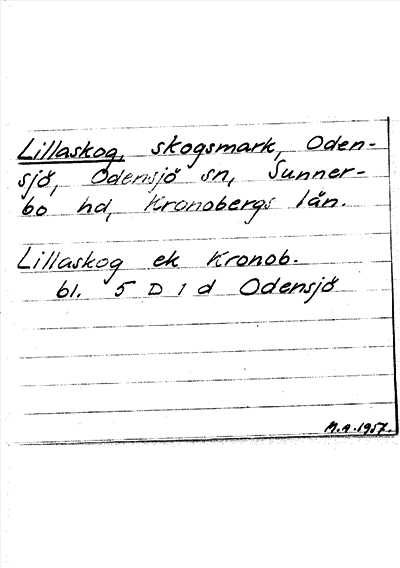 Lillaskog, skogsmark, Oden-
sjö, Odensjö sn, Sunner-
bo hd, Kronobergs län.
Lillaskog ek Kronob.
bl. 5 D 1 d Odensjö
M.A.1957.